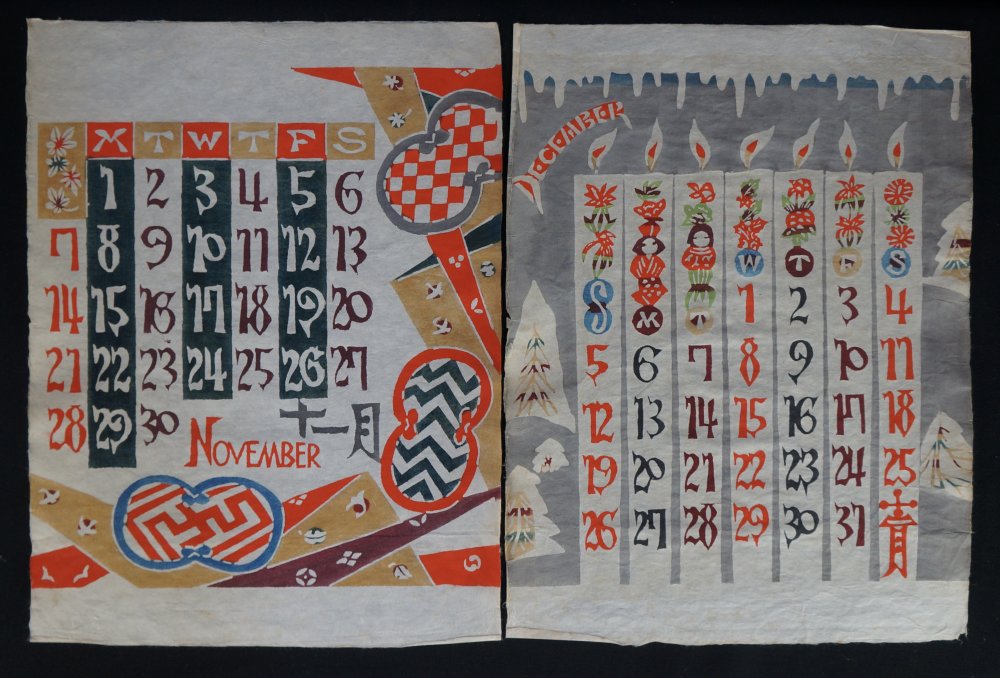 M T W T F S
1 2 3 4 5 6
7 8 9 10 11 12 13
14 15 16 17 18 19 20
21 22 23 24 25 26 27
28 29 30
NOVEMBER
十一月
DECEMBER
S M T W T F S
1 2 3 4
5 6 7 8 9 10 11
12 13 14 15 16 17 18
19 20 21 22 23 24 25
26 27 28 29 30 31
十二月